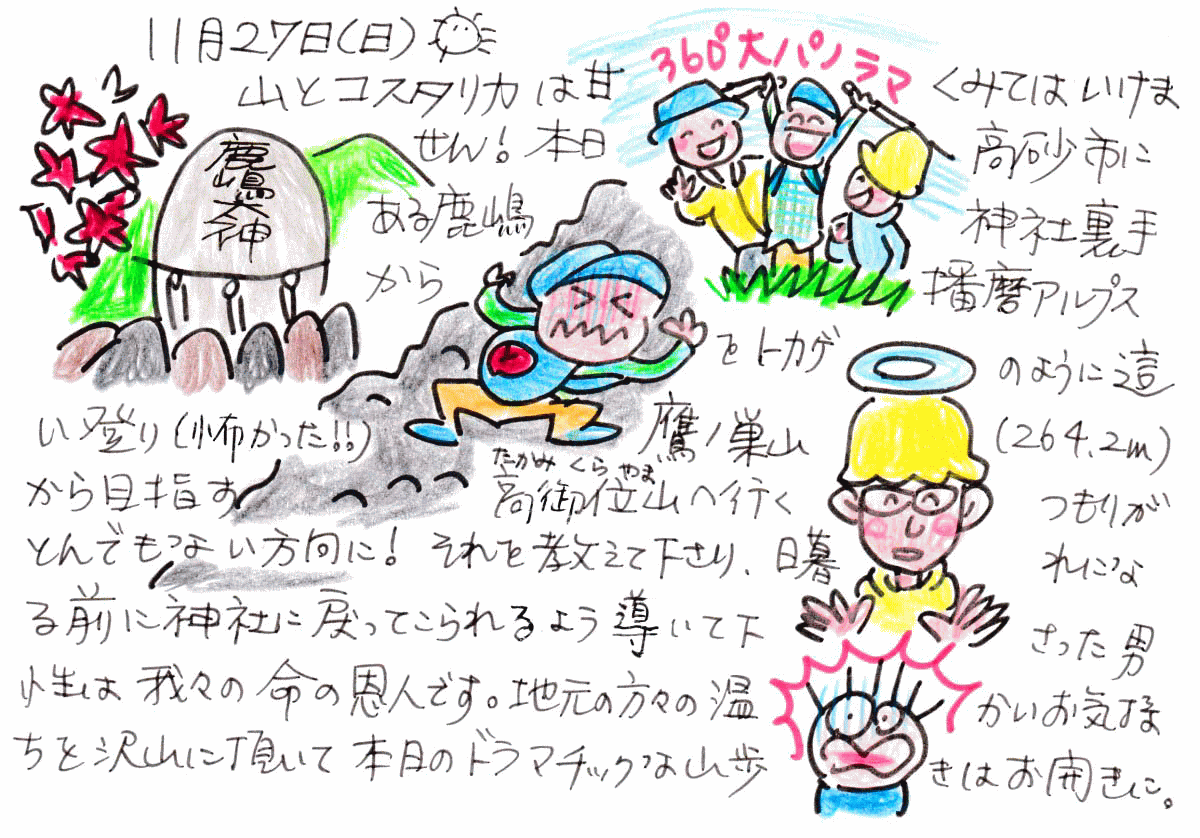 11月27日(日)
360°大パノラマ
山とコスタリカは甘くみてはいけま
せん！本日高砂市に
鹿嶋大神
ある鹿嶋神社裏手
から播磨アルプス
をトカゲのように這
い登り(怖かった!!)鷹ノ巣山(264.2m)
たかみくらやま
から目指す高御位山へ行くつもりが
とんでもない方向に！それを教えて下さり、日暮れにな
る前に神社に戻ってこられるよう導いて下さった男
性は我々の命の恩人です。地元の方々の温かいお気持
ちを沢山に頂いて本日のドラマチックな山歩きはお開きに。